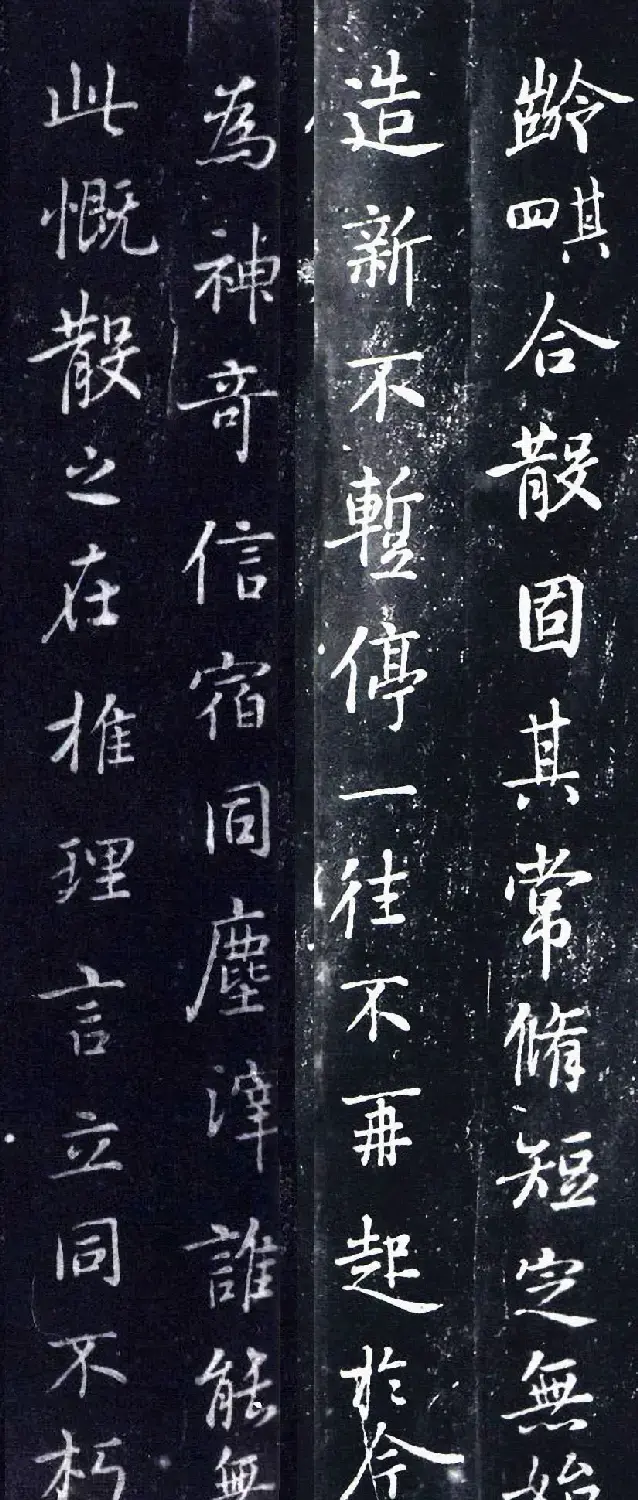 齡 四 其 合散固其常脩短定無始
造新不暫停一往不再起於今
為神奇信宿同塵滓誰能無
此慨散之在推理言立同不朽